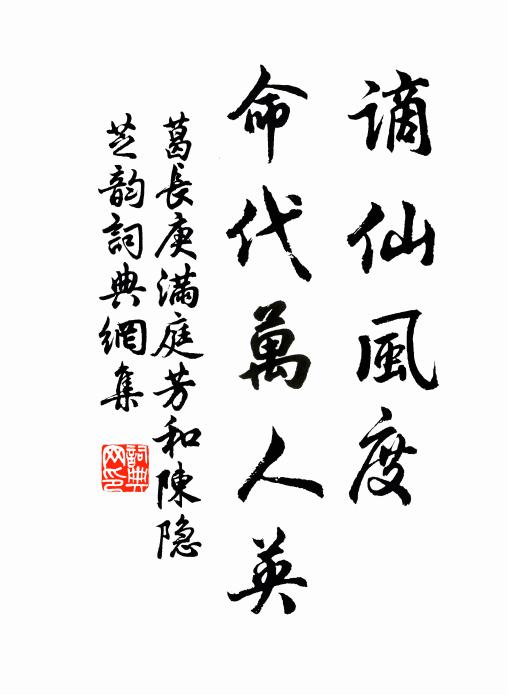 謫仙風度
命代萬人英
葛長庚滿庭芳和陳隱
芝韵詞典網集
詞典网印